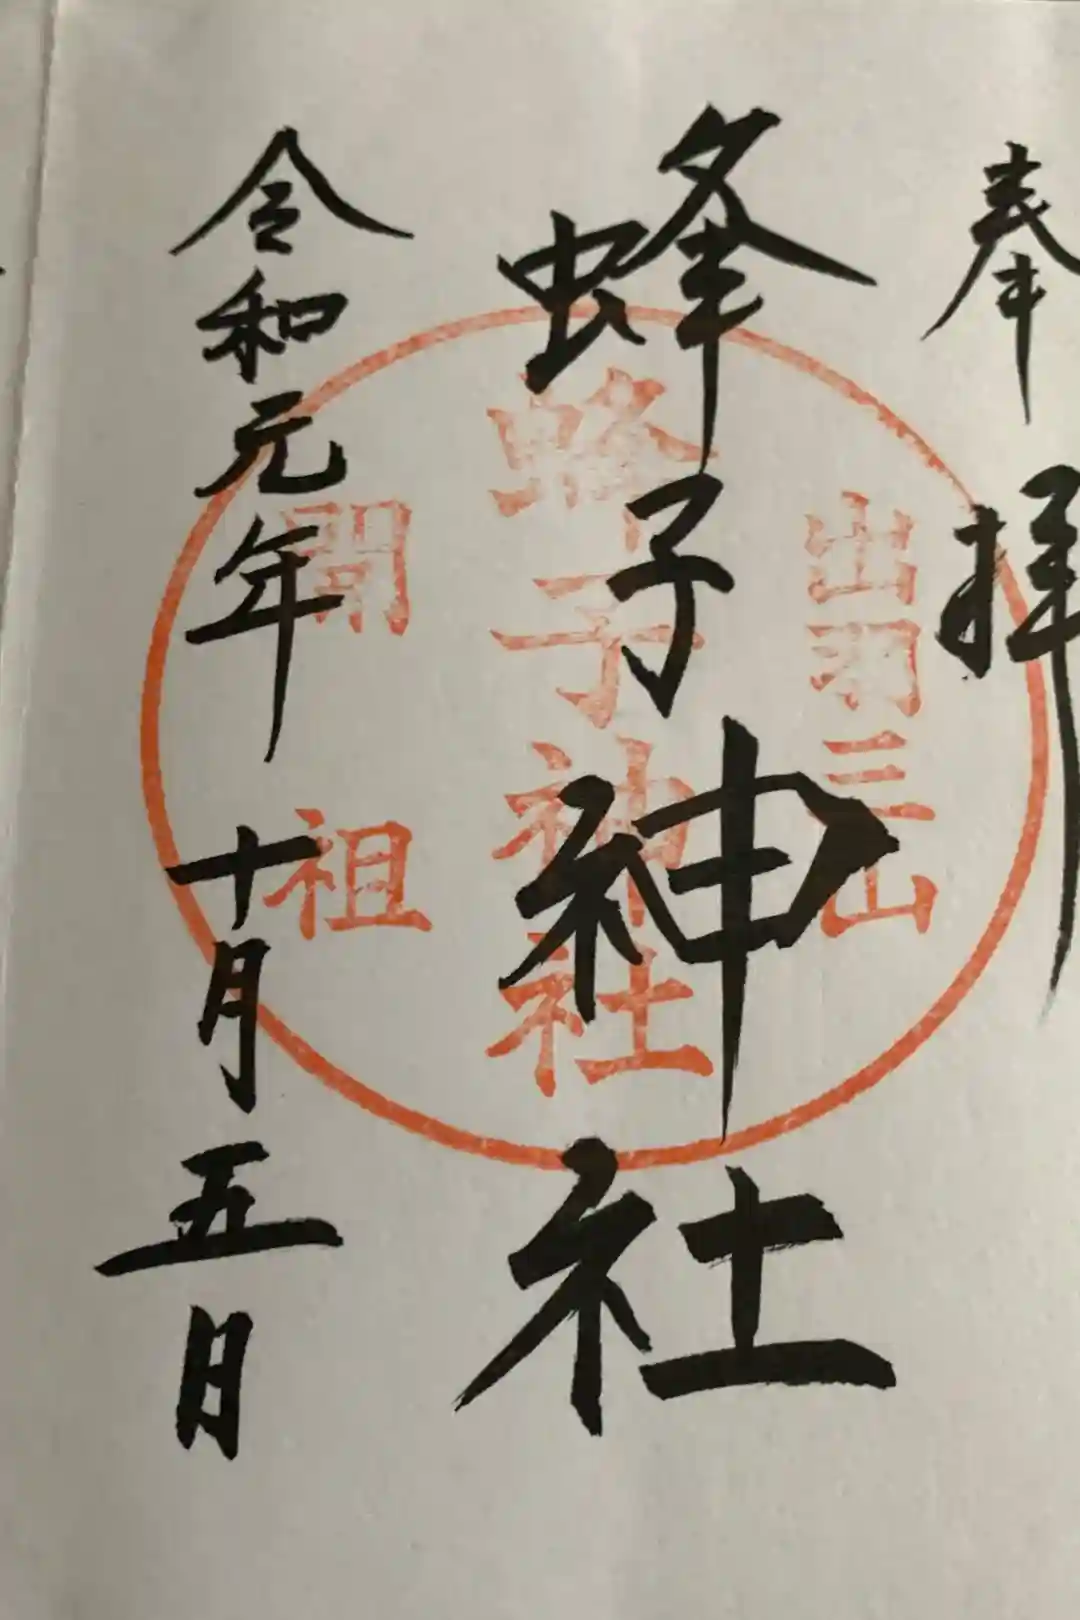 奉拝
出羽三山
蜂子神社
蜂子神社
開祖
令和元年十月五日